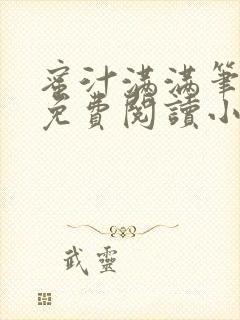 蜜汁满满筆
免費閱讀小
武靈